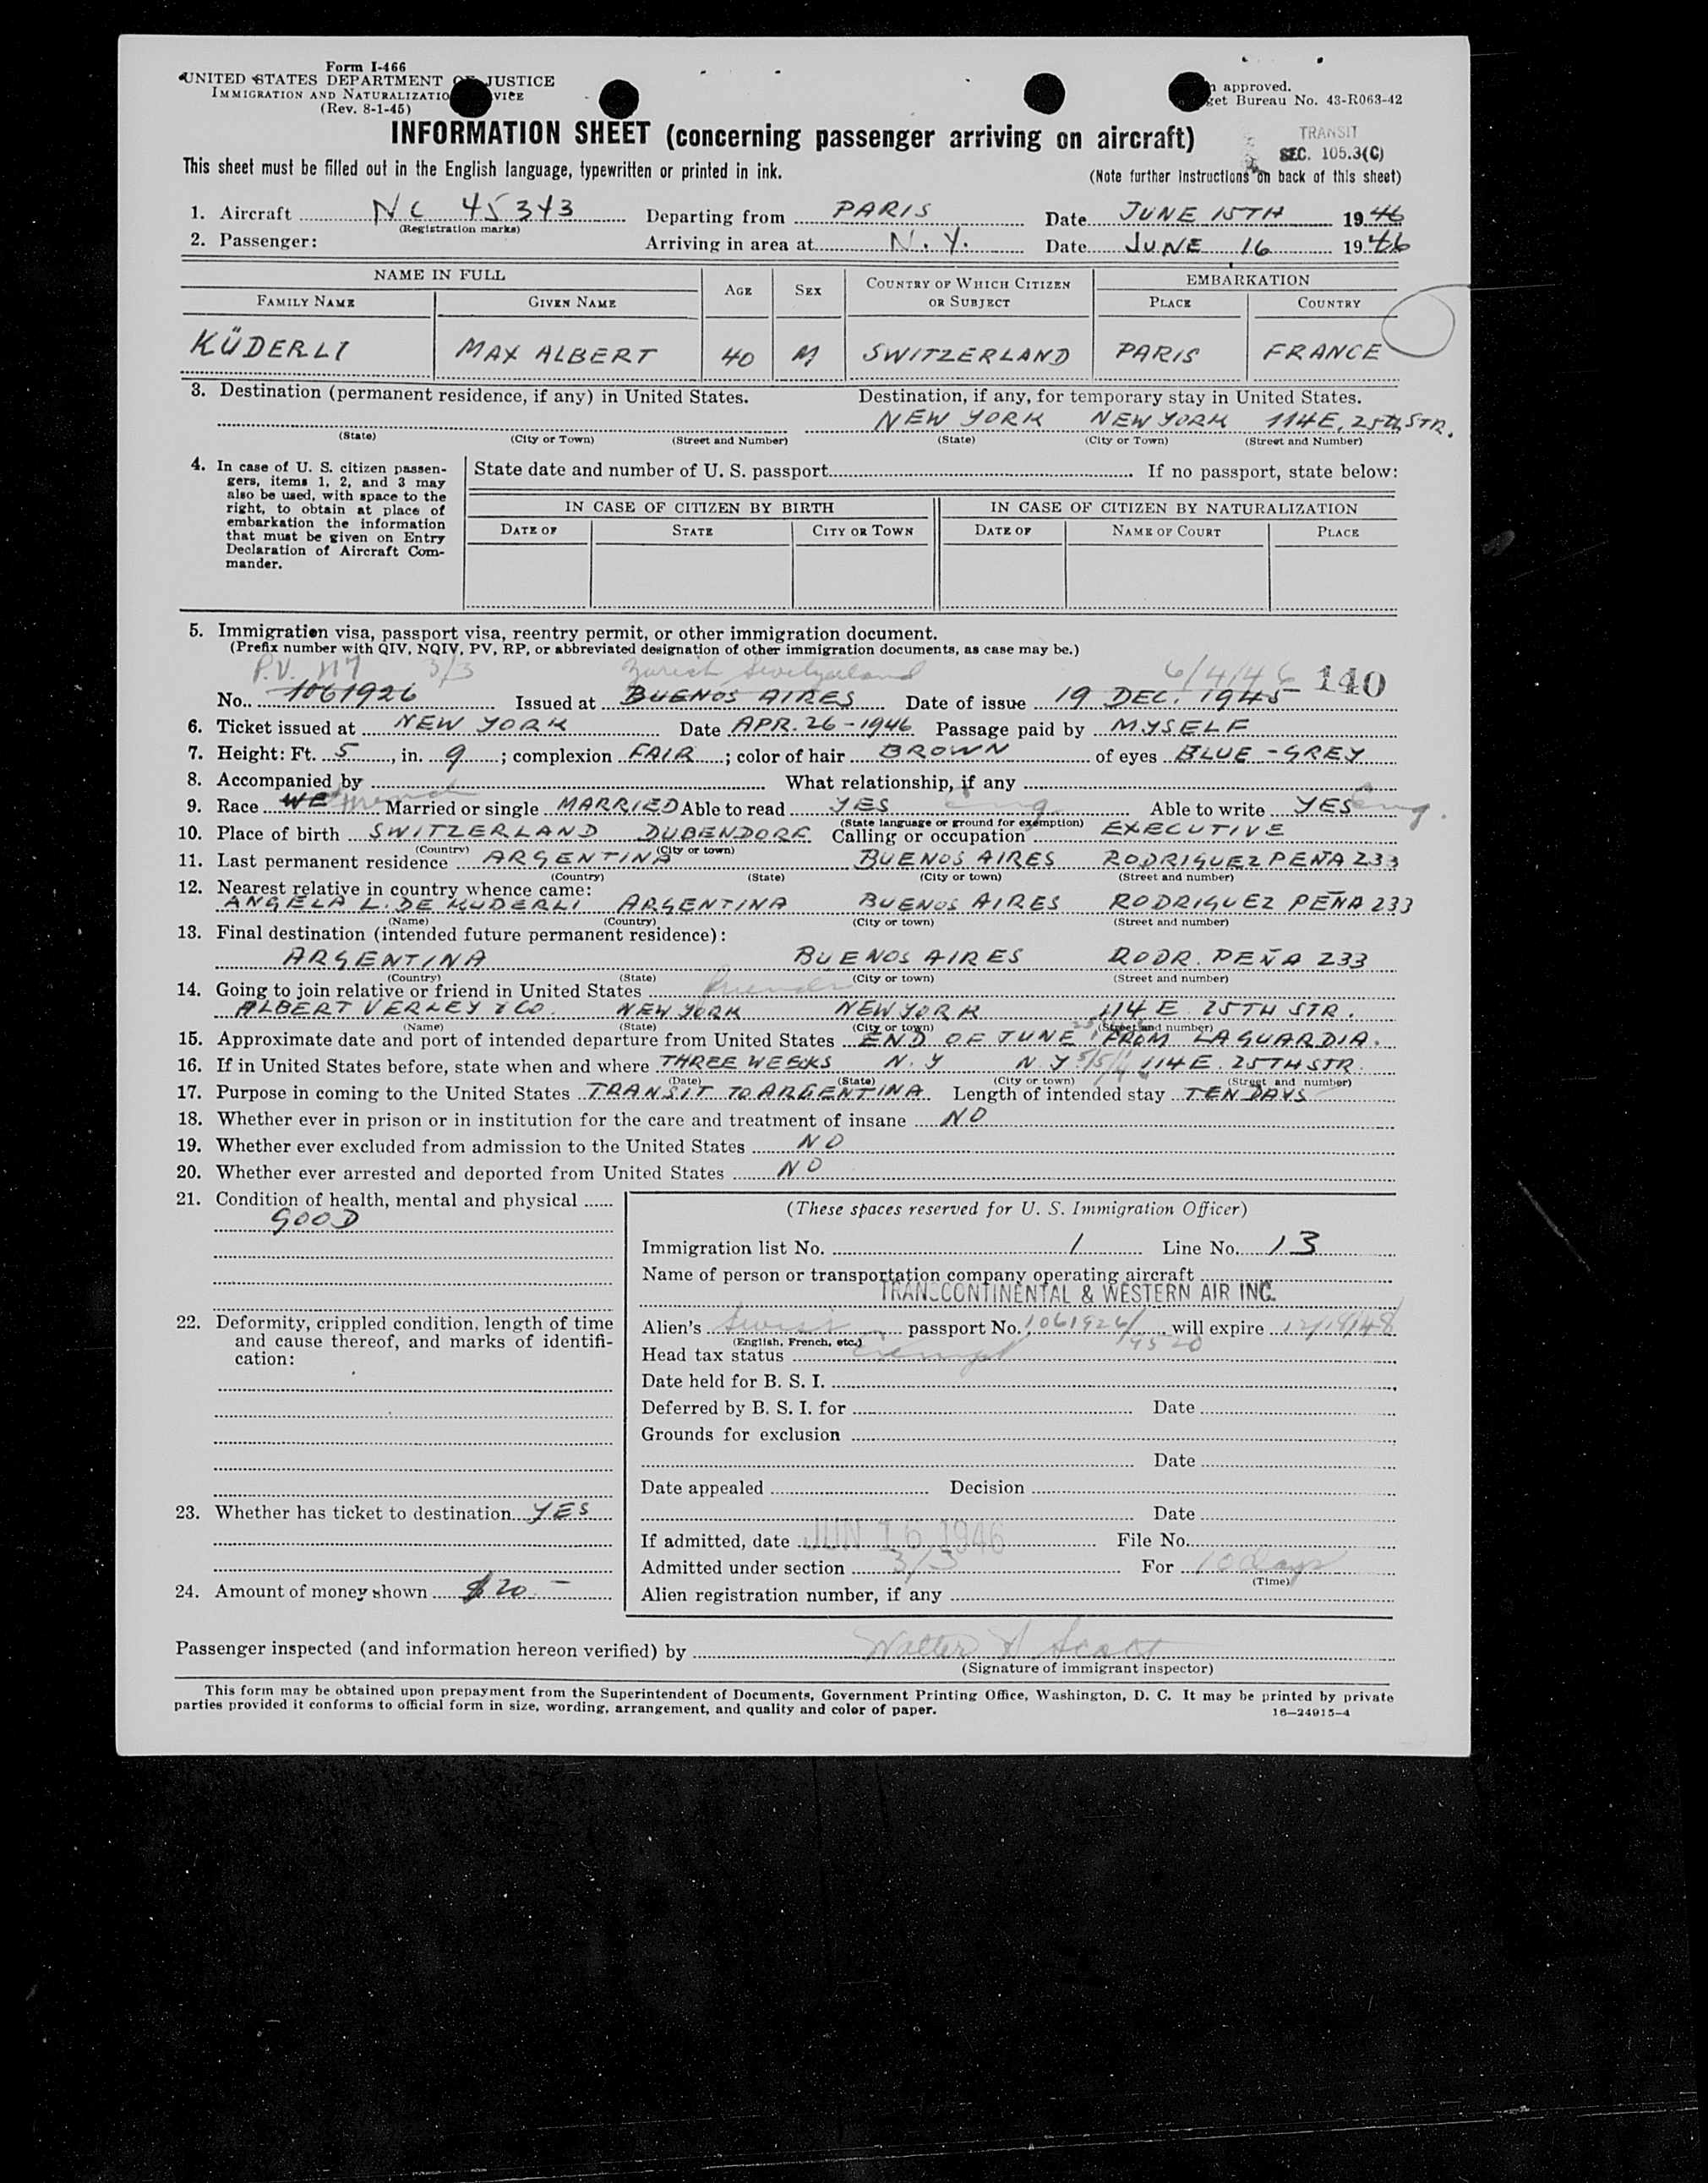 Form I-466
UNITED STATES DEPARTMENT OF JUSTICE
IMMIGRATION AND NATURALIZATIO VICE
(Rev. 8-1-45)
approved.
get Bureau No. 43-R063-42
INFORMATION SHEET (concerning passenger arriving on aircraft)
TRANSIT
SEC. 105.3(C)
This sheet must be filled out in the English language, typewritten or printed in ink.
(Note further instructions on back of this sheet)
1. Aircraft NC 45343 Departing from PARIS Date JUNE 15TH 1946
(Registration marks)
2. Passenger: Arriving in area at N.Y. Date JUNE 16 1946
NAME IN FULL AGE SEX COUNTRY OF WHICH CITIZEN OR SUBJECT EMBARKATION
FAMILY NAME GIVEN NAME PLACE COUNTRY
KÜDERLI MAX ALBERT 40 M SWITZERLAND PARIS FRANCE
3. Destination (permanent residence, if any) in United States. Destination, if any, for temporary stay in United States.
NEW YORK NEW YORK 114 E. 25th STR.
(State) (City or Town) (Street and Number) (State) (City or Town) (Street and Number)
4. In case of U. S. citizen passengers, items 1, 2, and 3 may also be used, with space to the right, to obtain at place of embarkation the information that must be given on Entry Declaration of Aircraft Commander.
State date and number of U. S. passport If no passport, state below:
IN CASE OF CITIZEN BY BIRTH IN CASE OF CITIZEN BY NATURALIZATION
DATE OF STATE CITY OR TOWN DATE OF NAME OF COURT PLACE
5. Immigration visa, passport visa, reentry permit, or other immigration document.
(Prefix number with QIV, NQIV, PV, RP, or abbreviated designation of other immigration documents, as case may be.)
P.V. 117 3/3 Zurich Switzerland 6/4/46 140
No. 1061926 Issued at BUENOS AIRES Date of issue 19 DEC. 1945
6. Ticket issued at NEW YORK Date APR. 26-1946 Passage paid by MYSELF
7. Height: Ft. 5, in. 9; complexion FAIR; color of hair BROWN of eyes BLUE-GREY
8. Accompanied by What relationship, if any
9. Race WE French Married or single MARRIED Able to read YES Eng Able to write YES Eng.
(State language or ground for exemption)
10. Place of birth SWITZERLAND DUBENDORF Calling or occupation EXECUTIVE
(Country) (City or town)
11. Last permanent residence ARGENTINA BUENOS AIRES RODRIGUEZ PEÑA 233
(Country) (State) (City or town) (Street and number)
12. Nearest relative in country whence came:
ANGELA L. DE KUDERLI ARGENTINA BUENOS AIRES RODRIGUEZ PEÑA 233
(Name) (Country) (City or town) (Street and number)
13. Final destination (intended future permanent residence):
ARGENTINA BUENOS AIRES RODR. PEÑA 233
(Country) (State) (City or town) (Street and number)
14. Going to join relative or friend in United States friends
ALBERT VERLEY & CO. NEW YORK NEW YORK 114 E 25TH STR.
(Name) (State) (City or town) (Street and number)
15. Approximate date and port of intended departure from United States END OF JUNE FROM LAGUARDIA.
16. If in United States before, state when and where THREE WEEKS N.Y N.Y 114 E. 25TH STR.
(Date) (State) (City or town) (Street and number)
17. Purpose in coming to the United States TRANSIT TO ARGENTINA Length of intended stay TEN DAYS
18. Whether ever in prison or in institution for the care and treatment of insane NO
19. Whether ever excluded from admission to the United States NO
20. Whether ever arrested and deported from United States NO
21. Condition of health, mental and physical
GOOD
(These spaces reserved for U. S. Immigration Officer)
Immigration list No. 1 Line No. 13
Name of person or transportation company operating aircraft
TRANSCONTINENTAL & WESTERN AIR INC.
22. Deformity, crippled condition, length of time and cause thereof, and marks of identification:
Alien's Swiss passport No. 1061926/4520 will expire 12/19/48
(English, French, etc.)
Head tax status exempt
Date held for B. S. I.
Deferred by B. S. I. for Date
Grounds for exclusion
Date
Date appealed Decision
23. Whether has ticket to destination YES
Date
If admitted, date JUN 16 1946 File No.
Admitted under section 3/3 For 10 days
(Time)
24. Amount of money shown $20.-
Alien registration number, if any
Passenger inspected (and information hereon verified) by Walter A Scott
(Signature of immigrant inspector)
This form may be obtained upon prepayment from the Superintendent of Documents, Government Printing Office, Washington, D. C. It may be printed by private
parties provided it conforms to official form in size, wording, arrangement, and quality and color of paper.
16—24915-4